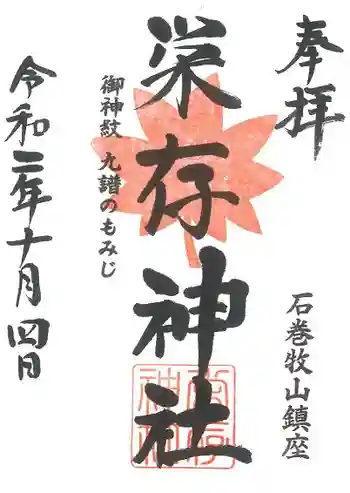 奉拝
石巻牧山鎮座
栄存神社
御神紋 九譜のもみじ
令和二年十月四日